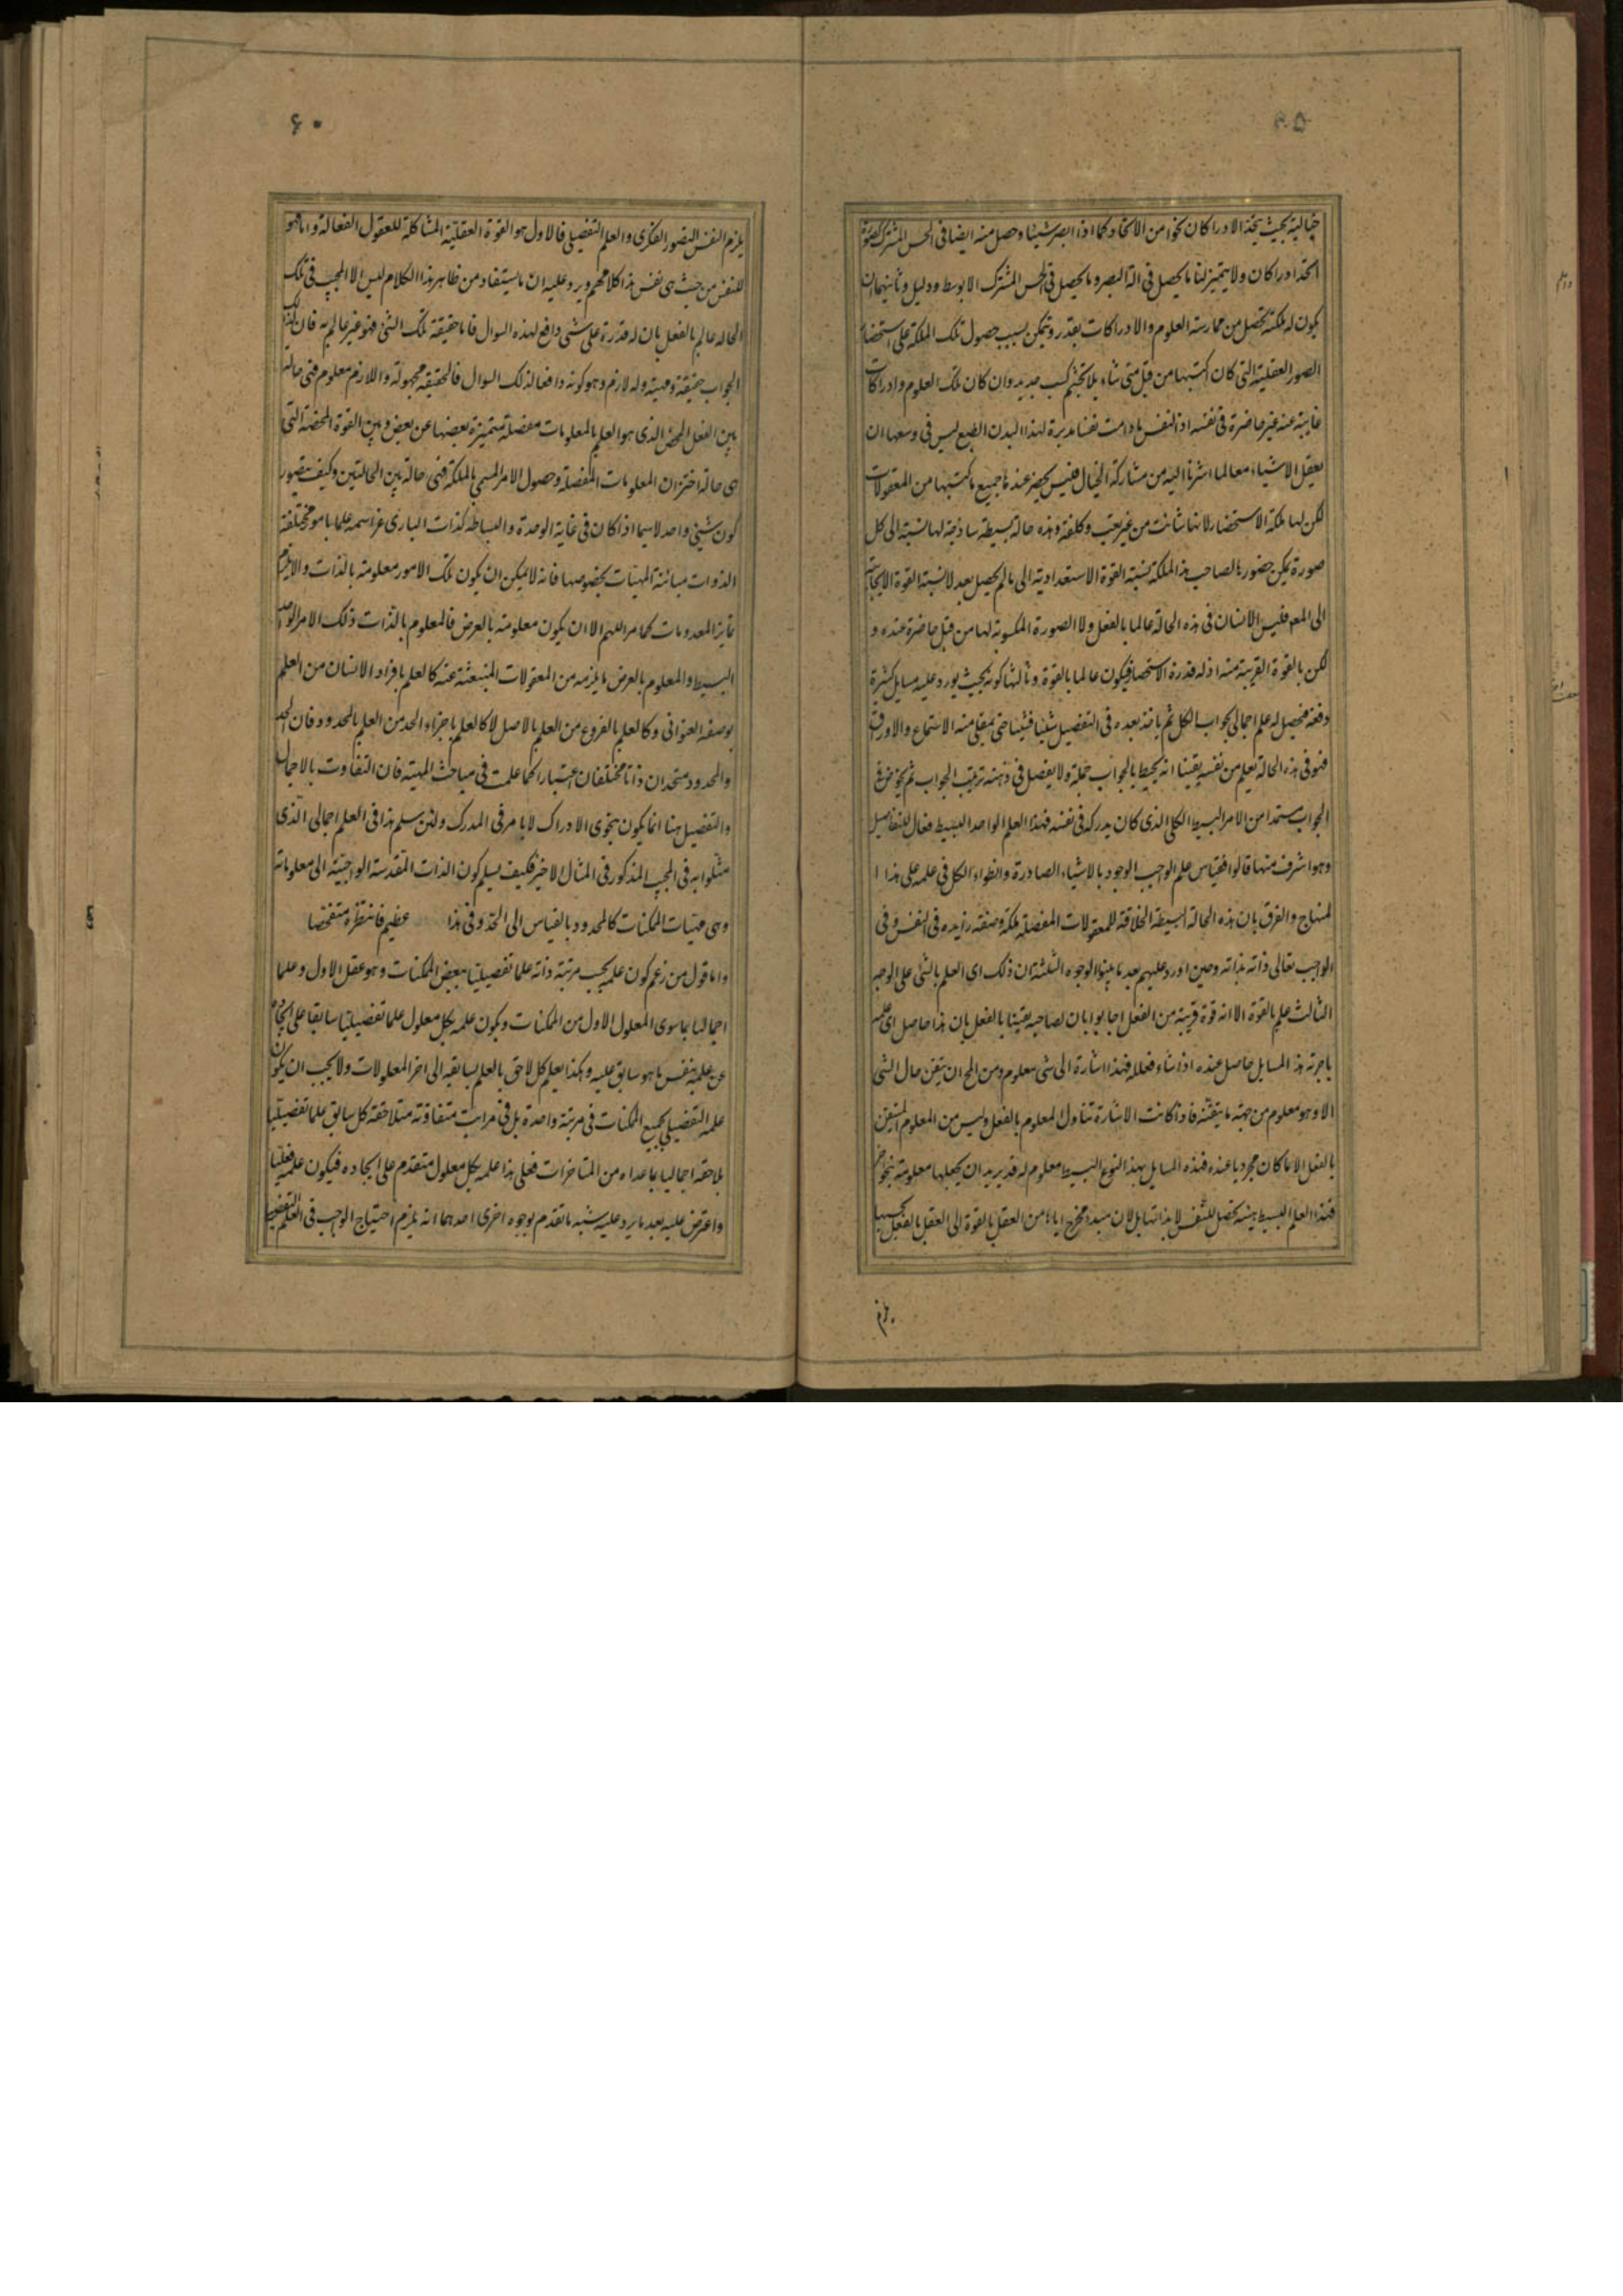 ۵۹
خيالية بحيث يتحد الادراكان نحوا من الاتحاد كما اذا ابصر شيئا وحصل منه ايضا فى الحس المشترك صورة
اتحد ادراكان ولا يتميز لنا ما يحصل فى الة البصر وما يحصل فى الحس المشترك الا بوسط ودليل وثانيهما ان
يكون له ملكة تحصل من ممارسة العلوم والادراكات يقدر ويتمكن بسبب حصول تلك الملكة على استحضار
الصور العقلية التى كان اكتسبها من قبل متى شاء بلا تجشم كسب جديد وان كان تلك العلوم وادراكات
غايبة عنه غير حاضرة فى نفسه اذ النفس ما دامت نفسا مدبرة لهذا البدن الطبع ليس فى وسعها ان
يعقل الاشياء معا لما اشرنا اليه من مشاركة الخيال فليس يحضر عندنا جميع ما كسبتها من المعقولات
لكن لها ملكة الاستحضار لانها شائت من غير تعب وكلفة وهذه حالة بسيطة ساذجة لها نسبة الى كل
صورة يمكن حضورها لصاحب هذا الملكة نسبة القوة الاستعدادية الى ما لم يحصل بعد لا نسبة القوة الايجابية
الى المعه فليس الانسان فى هذه الحالة عالما بالفعل ولا الصورة المكسوبة لها من قبل حاضرة عنده و
لكن بالقوة القريبة منه اذ له قدرة الاستحضار فيكون عالما بالقوة وثالثها كونه بحيث يورد عليه مسايل كثيرة
دفعة فيحصل له علم اجمالى بجواب الكل ثم ياخذ بعده فى التفصيل شيئا فشيئا حتى يمتلى منه الاستماع والاوراق
فهو فى هذه الحالة يعلم من نفسه يقينا انه يحيط بالجواب جملة ولا يفصل فى ذهنه ترتيب الجواب ثم يخوض فى
الجواب مستمدا من الامر البسيط الكلى الذى كان يدركه فى نفسه فهذا العلم الواحد البسيط فعال للتفاصيل
وهو اشرف منها قالوا فقياس علم الواجب الوجود بالاشياء الصادرة وانطواء الكل فى علمه على هذا ا
لمنهاج والفرق بان هذه الحالة البسيطة الخلاقة للمعقولات المفصلة ملكة وصفة زايده فى النفس وفى
الواجب تعالى ذاته بذاته وحين اورد عليهم بعد ما بينوا الوجوه الثلثة ان ذلك اى العلم بالشى على الوجه
الثالث علم بالقوة الا انه قوة قريبة من الفعل اجابوا بان لصاحبه يقينا بالفعل بان هذا حاصل اى علمه
باجوبة هذ المسايل حاصل عنده اذا شاء فعلله فهذا اشارة الى شى معلوم ومن المح ان يتيقن حال الشى
الا وهو معلوم من جهة ما يتيقنه فاذا كانت الاشارة تتناول المعلوم بالفعل وليس من المعلوم المتيقن
بالفعل الا ما كان مجردا عنده فهذه المسايل بهذا النوع البسيط معلوم له قد يريد ان يجعلها معلومة بنحو اخر
فهذا العلم البسيط هيئة تحصل للنفس لا بذاتها بل لان مبدء مخرج اياها من العقل بالقوة الى العقل بالفعل بحسبها
يلزم
۶۰
يلزم النفس التصور الفكرى والعلم التفصيلى فالاول هو القوة العقلية المشاكلة للعقول الفعالة واما هو
للنفس من حيث هى نفس هذا كلامهم ويرد عليه ان ما يستفاد من ظاهر هذا الكلام ليس الا المجيب فى تلك
الحاله عالم بالفعل بان له قدرة على شى دافع لهذه السوال فاما حقيقة تلك الشى فهو غير عالم به فان لذلك
الجواب حقيقة ومهية وله لازم وهو كونه دافعا لذلك السوال فالحقيقة مجهولة واللازم معلوم فهى حالة
بين الفعل المحض الذى هو العلم بالمعلومات مفصلة متميزة بعضها عن بعض وبين القوة المحضة التى
هى حالة اختزان المعلومات المفصلة وحصول الامر المسمى بالملكة فهى حالة بين الحالتين وكيف يتصور
كون شيئى واحد لا سيما اذا كان فى غاية الوحدة والبساطة كذات البارى عز اسمه علما بامور مختلفة
الذوات متباينة المهيات بخصوصها فانه لا يمكن ان يكون تلك الامور معلومة بالذات والا يلزم
تمايز المعدومات كما مر اللهم الا ان يكون معلومة بالعرض فالمعلوم بالذات ذلك الامر الواحد
البسيط والمعلوم بالعرض ما يلزمه من المعقولات المنبعثة عنه كالعلم بافراد الانسان من العلم
بوصفه العنوانى وكالعلم بالفروع من العلم بالاصل لا كالعلم باجزاء الحد من العلم بالمحدود فان الحد
والمحدود متحدان ذاتا مختلفان اعتبارا كما علمت فى مباحث المهية فان التفاوت بالاجمال
والتفصيل هنا انما يكون بنحوى الادراك لا بامر فى المدرك ولئن سلم هذا فى العلم اجمالى الذى
مثلوا به فى المجيب المذكور فى المثال الاخير فكيف يسلم كون الذات المقدسة الواجبية الى معلوماته
وهى مهيات الممكنات كالمحدود بالقياس الى الحد وفى هذا عظيم فانتظره متفحصا
واما قول من زعم كون علمه بحسب مرتبة ذاته علما تفصيليا ببعض الممكنات وهو عقل الاول وعلما
اجماليا بما سوى المعلول الاول من الممكنات ويكون علمه بكل معلول علما تفصيليا سابقا على ايجاده
عن علميه بنفس ما هو سابق عليه وهكذا يعلم كل لاحق بالعلم بسابقه الى اخر المعلولات ولا يجب ان يكون
علمه التفصيلى بجميع الممكنات فى مرتبة واحدة بل فى مراتب متفاوتة متلاحقة كل سابق علما تفصيليا
بلاحقه اجماليا بما عداه من المتاخرات فعلى هذا علمه بكل معلول متقدم على ايجاده فيكون علمه فعليا
واعترض عليه بعد ما يرد عليه شبه ما تقدم بوجوه اخرى احدهما انه يلزم احتياج الواجب فى العلم التفصيلى